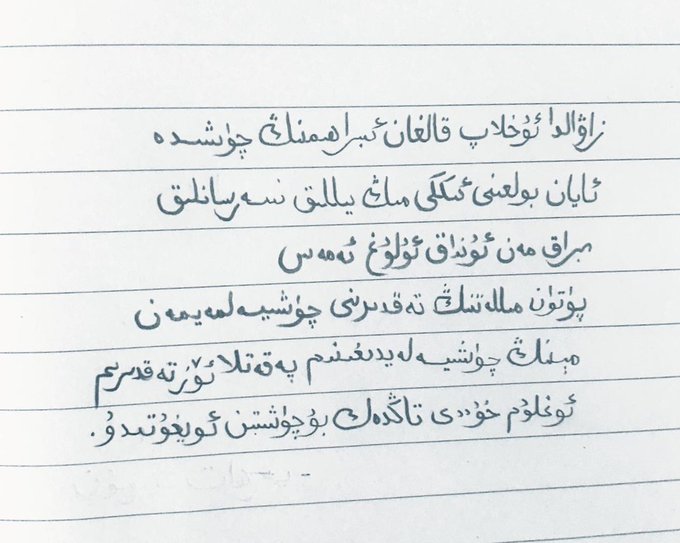 زاۋالدا ئۇخلاپ قالغان ئىبراھىمنىڭ چۈشىدە
ئايان بولغىنى ئىككى مىڭ يىللىق سەرسانلىق
بىراق مەن ئۇنداق ئۇلۇغ ئەمەس
پۈتۈن مىللەتنىڭ تەقدىرنى چۈشىيەلمەيمەن
مېنىڭ چۈشىيەلەيدىغىنىم پەقەتلا ئۆز تەقدىرىم
ئوغلۇم خۇددى تاڭدەك بۇ چۈشتىن ئويغۇتىدۇ.